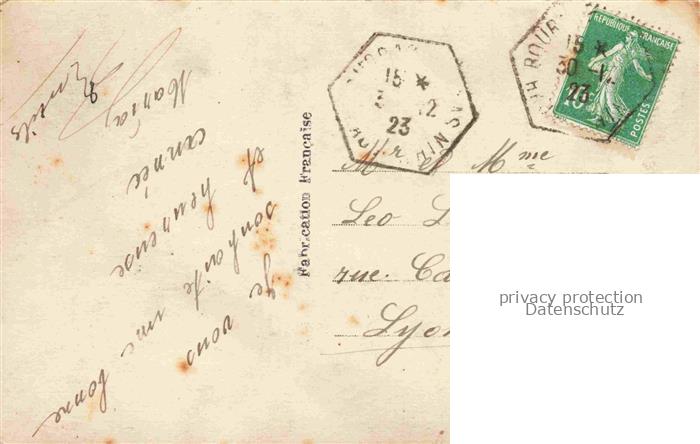 Je vous
souhaite une bonne
et heureuse
année
Maria
Fabrication Française
15 *
12
23
15 *
30
23
REPUBLIQUE FRANÇAISE
10
POSTES
Mr & Mme
Leo
rue.
Lyon
privacy protection
Datenschutz